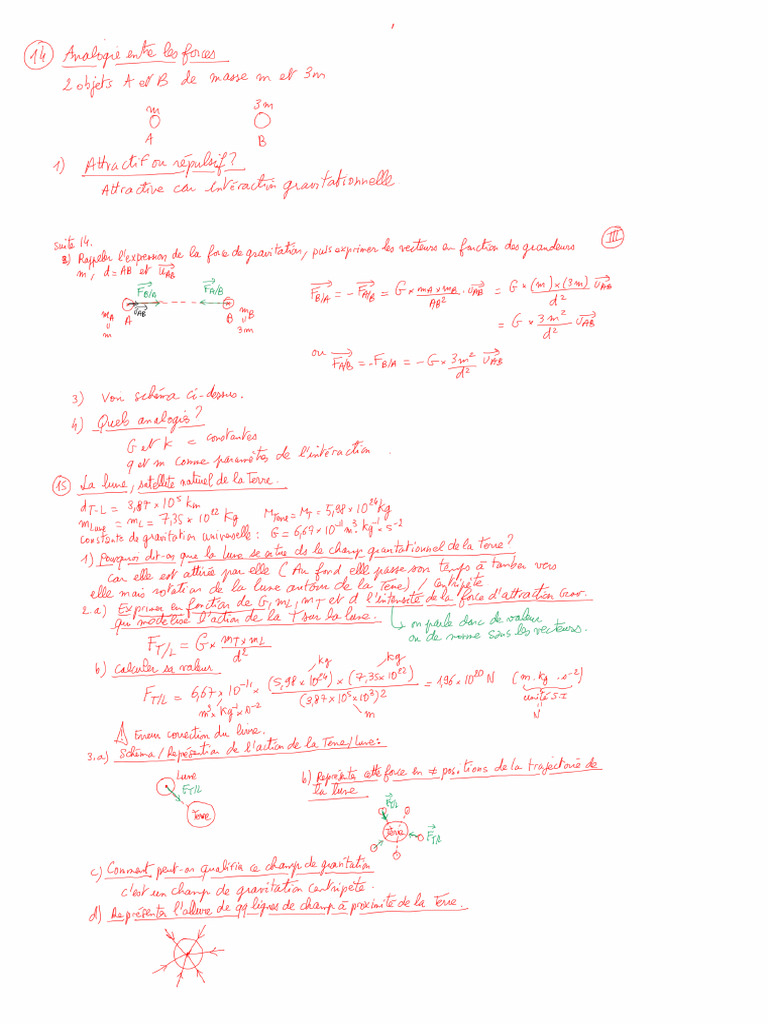 14 Analogie entre les forces
2 objets A et B de masse m et 3m
m 3m
A B
1) Attractif ou répulsif?
Attractive car intéraction gravitationnelle
Suite 14.
III
3) Rappeler l'expression de la force de gravitation, puis exprimer les vecteurs en fonction des grandeurs
m, d=AB et →U_AB
→F_B/A →F_A/B
m_A A →U_AB B m_B
m 3m
→F_B/A = -→F_A/B = G × (m_A × m_B)/AB² · →U_AB = G × ((m)×(3m))/d² →U_AB
= G × 3m²/d² →U_AB
ou →F_A/B = -F_B/A = -G × 3m²/d² →U_AB
3) Voir schéma ci-dessus.
4) Quels analogies?
G et K = constantes
q et m comme paramètres de l'intéraction
15 La lune, satellite naturel de la Terre.
d_T-L = 3,87 × 10⁵ km
m_Lune = m_L = 7,35 × 10²² Kg M_Terre = M_T = 5,98 × 10²⁴ Kg
Constante de gravitation universelle : G = 6,67 × 10⁻¹¹ m³.kg⁻¹.s⁻²
1) Pourquoi dit-on que la lune se entre ds le champ gravitationnel de la Terre?
Car elle est attirée par elle (Au fond elle passe son temps à tomber vers
elle mais rotation de la lune autour de la Terre) / Centripète
2.a) Exprimer en fonction de G, m_L, m_T et d l'intensité de la force d'attraction Grav.
qui modélise l'action de la T sur la lune.
↳ on parle donc de valeur
ou de norme sous les vecteurs.
F_T/L = G × (m_T × m_L)/d²
b) Calculer sa valeur
kg kg
F_T/L = 6,67 × 10⁻¹¹ × ((5,98 × 10²⁴) × (7,35×10²²))/(3,87 × 10⁵ × 10³)² = 1,96 × 10²⁰ N (m.kg.s⁻²)
m³ × kg⁻¹ × s⁻² m unité S.I
N
⚠ Erreur correction du livre.
3.a) Schéma / Représention de l'action de la Terre/Lune:
Lune
F_T/L
Terre
b) Représenter cette force en ≠ positions de la trajectoire de
la lune
→F_T/L
Terre
→F_T/L
c) Comment peut-on qualifier ce champ de gravitation
c'est un champ de gravitation centripète.
d) Représenter l'allure de qq lignes de champ à proximité de la Terre.